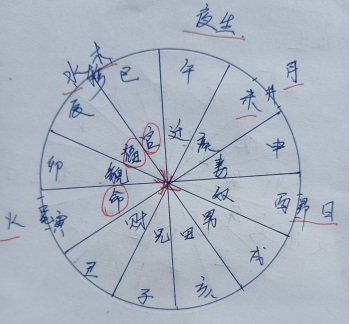 夜生
木
水 巳 午 月
辰 未 井
福 官 迁 疾
卯 貌 妻 申
命 奴
火 寅 财 兄 田 男 酉 昴 日
丑 戌
子 亥